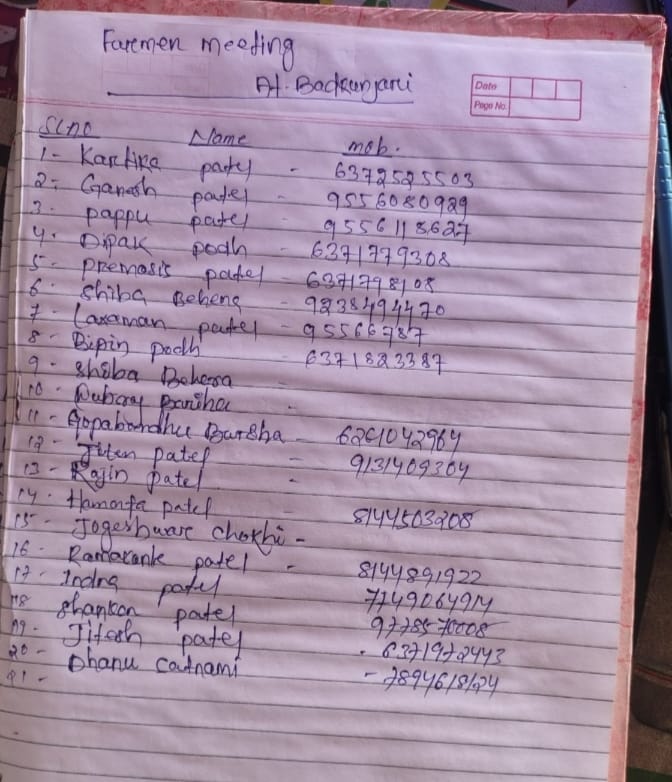 Farmer meeting
At. Badkunjari
Date
Page No.
Sl.no Name mob.
1- Kartika patel - 6372525503
2- Ganesh patel - 9556080929
3. pappu patel 9556118627
4. Dipak podh - 6371779308
5- premasis patel - 6371798108
6. Shiba Behena - 9238494470
7- Laxaman patel - 95566787
8- Bipin podh 6371823387
9- Shiba Behera -
10- Bariha -
11- Gopabandhu Bariha - 6261042964
12- Jiten patel - 9131409304
13- Rajin patel -
14. Hamanta patel 8144503208
15- Jogeshware chokhi -
16- Ramakank patel - 8144891922
17- Indra patel
18 Shankar patel 9778570008
19- Jitesh patel - 6371972443
20- Dhanu Catnami - 7894618124
21-